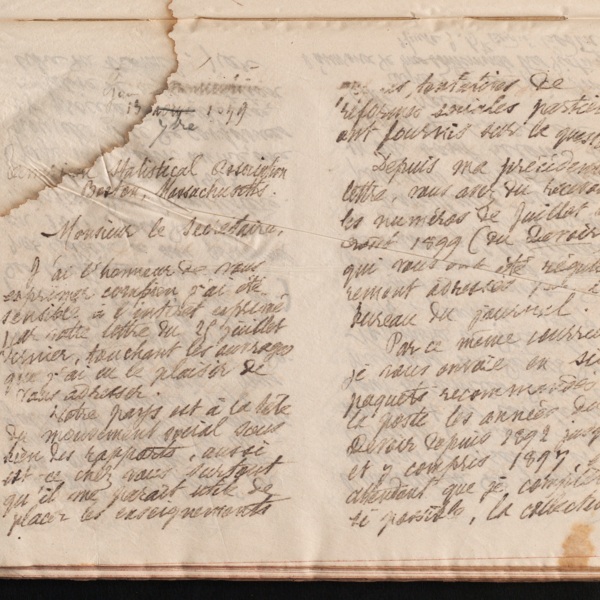 1899
American Statistical Association
Boston, Massachusetts.
Monsieur le Secrétaire,
J'ai l'honneur de vous
exprimer combien j'ai été
sensible à l'intérêt exprimé
par votre lettre du 25 juillet
dernier, touchant les ouvrages
que j'ai eu le plaisir de
vous adresser.
Votre pays est à la tête
du mouvement social sous
bien des rapports, aussi
est-ce chez vous surtout
qu'il me paraît utile de
placer les enseignements
les tentatives de
réformes sociales partic
ont fournis sur la ques
Depuis ma précédente
lettre, vous avez dû recevoir
les numéros de juillet
août 1899 (du Devoir
qui vous ont été régu
rement adressés
bureau du journal.
Par ce même courrier
je vous envoie en six
paquets recommandés
la poste les années du
Devoir depuis 1892 jusq
et y compris 1897,
attendant que je complète
si possible, la collection